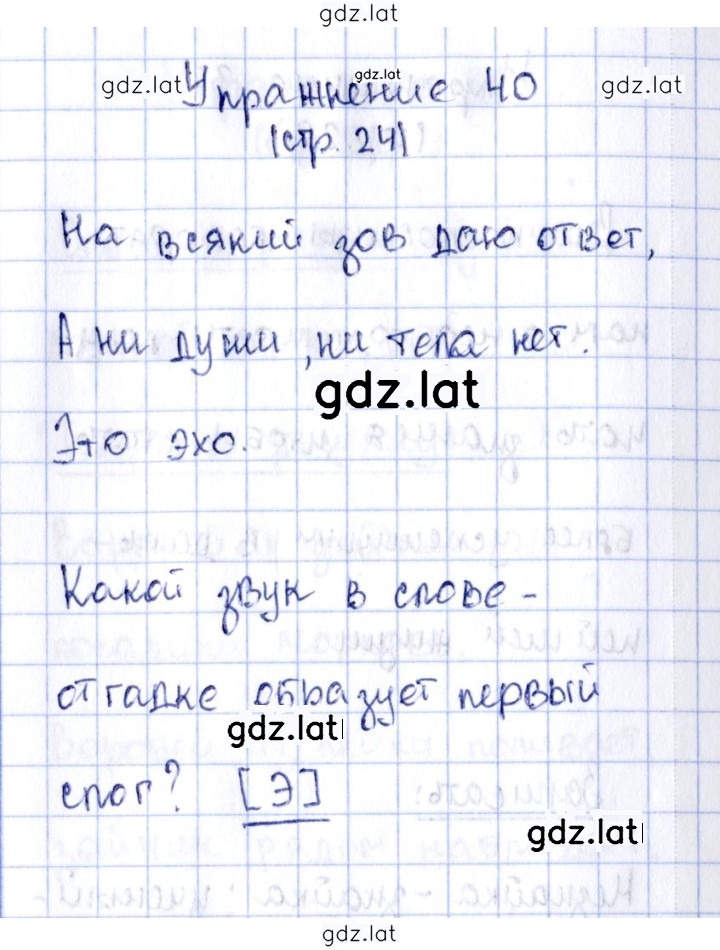 gdz.lat
gdz.lat gdz.lat gdz.lat
Упражнение 40
(стр. 24)
На всякий зов даю ответ,
А ни души, ни тела нет.
gdz.lat
Это эхо.
Какой звук в слове-
отгадке образует первый
gdz.lat
слог? [Э]
gdz.lat
gdz.lat